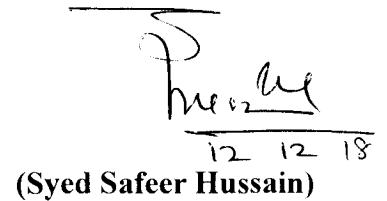 12 12 18
(Syed Safeer Hussain)